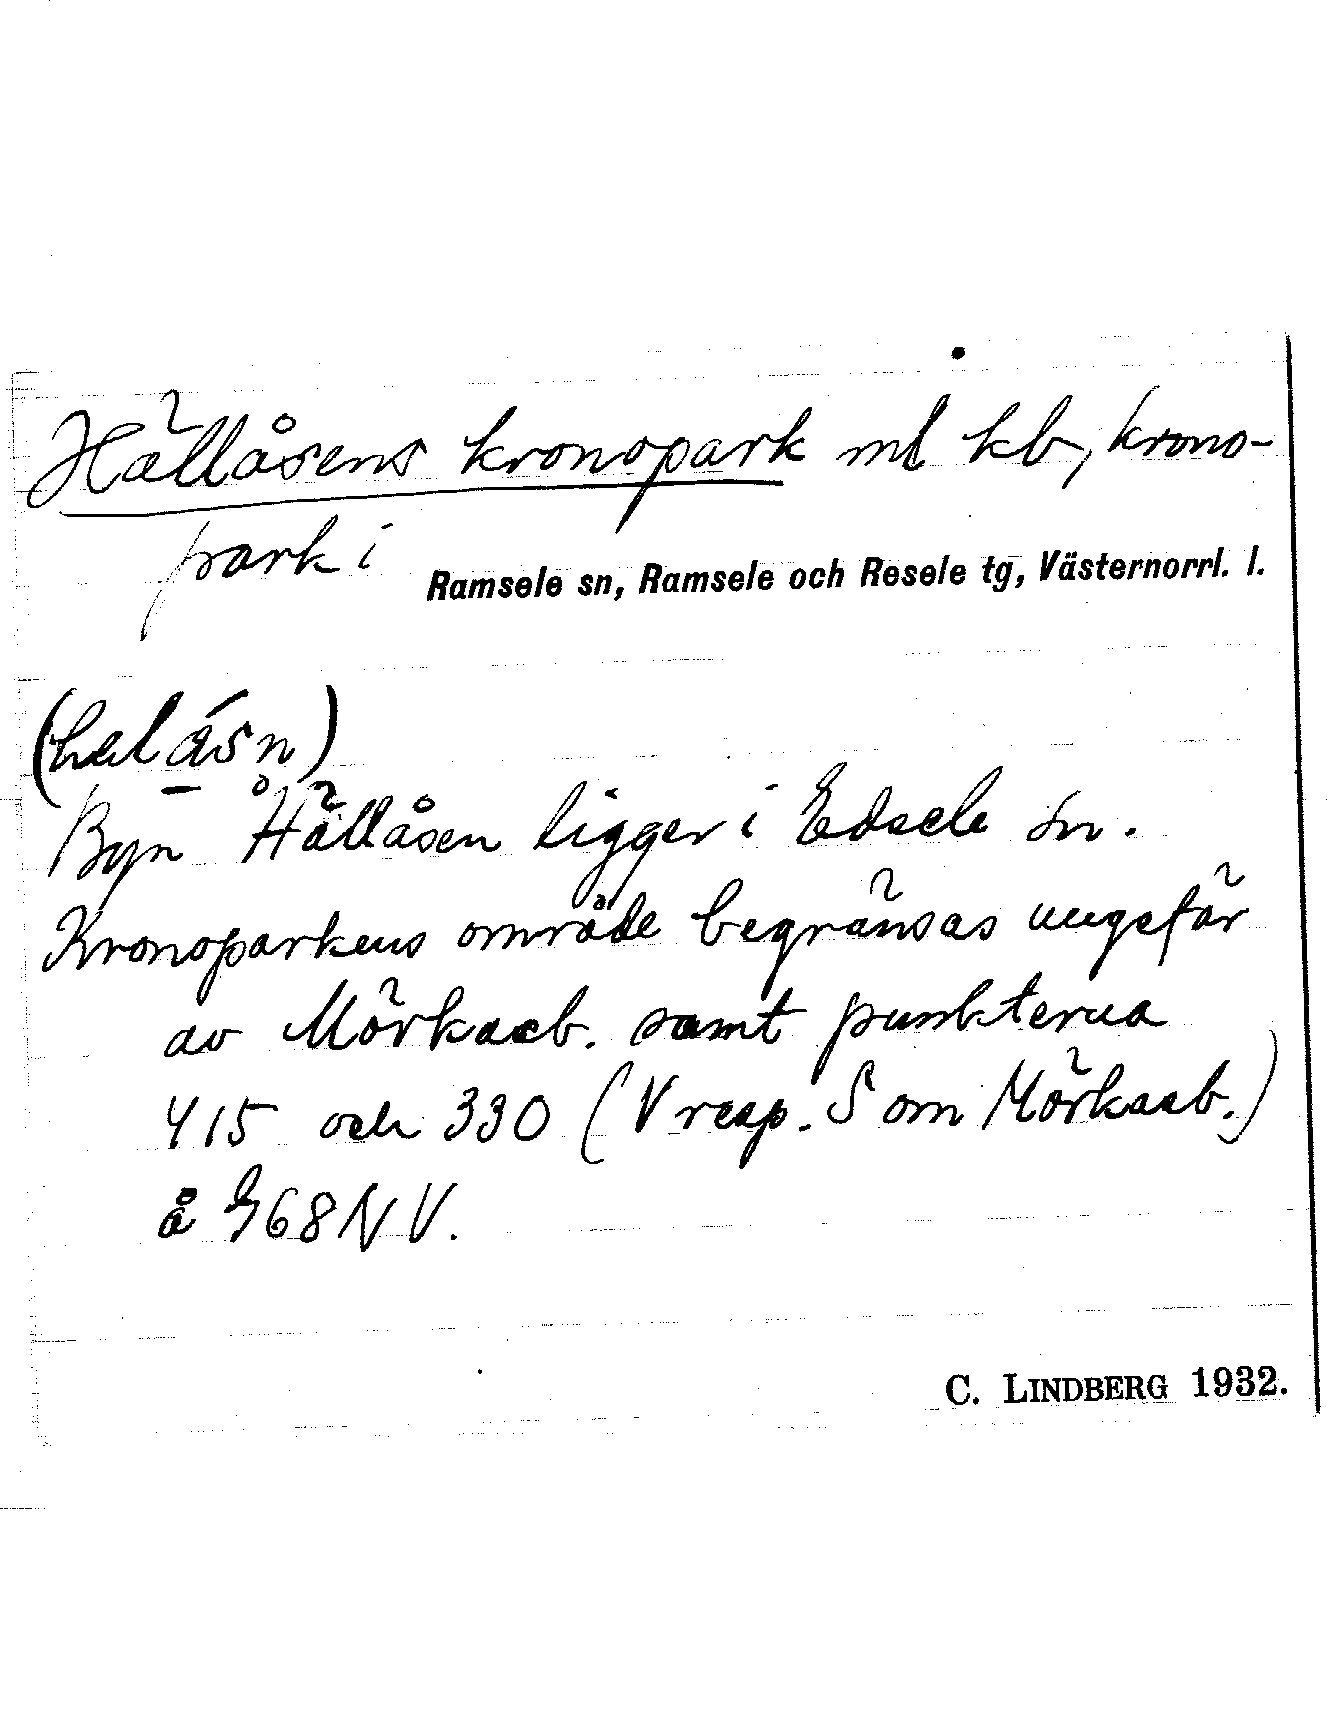 Hällåsens kronopark ml kb, krono-
park i
Ramsele sn, Ramsele och Resele tg, Västernorrl. l.
(hel åsn)
Byn Hällåsen ligger i Edsele sn.
Kronoparkens område begränsas ungefär
av Mörkaåb. samt punkterna
415 och 330 (V resp. S om Mörkaåb.)
å G68NV.
C. LINDBERG 1932.